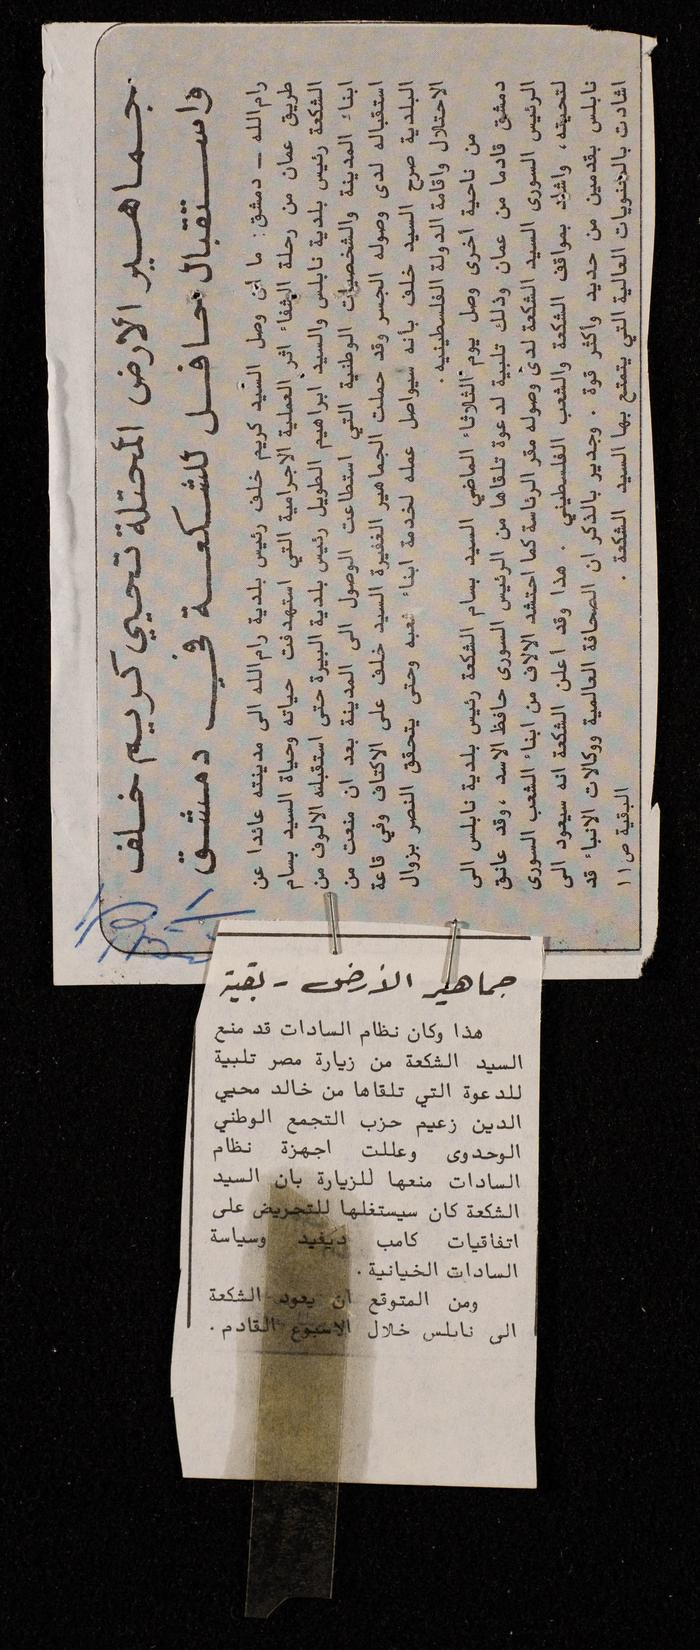 جماهير الارض المحتلة تحيي كريم خلف
واستقبال حافل للشكعة في دمشق
رام الله – دمشق : ما ان وصل السيد كريم خلف رئيس بلدية رام الله الى مدينته عائدا عن
طريق عمان من رحلة الشفاء اثر العملية الاجرامية التي استهدفت حياته وحياة السيد بسام
الشكعة رئيس بلدية نابلس والسيد ابراهيم الطويل رئيس بلدية البيرة حتى استقبله الالوف من
ابناء المدينة والشخصيات الوطنية التي استطاعت الوصول الى المدينة بعد ان منعت من
استقباله لدى وصوله الجسر وقد حملت الجماهير الغفيرة السيد خلف على الاكتاف وفي قاعة
البلدية صرح السيد خلف بأنه سيواصل عمله لخدمة ابناء شعبه وحتى يتحقق النصر بزوال
الاحتلال واقامة الدولة الفلسطينيه .
من ناحية اخرى وصل يوم الثلاثاء الماضي السيد بسام الشكعة رئيس بلدية نابلس الى
دمشق قادما من عمان وذلك تلبية لدعوة تلقاها من الرئيس السوري حافظ الاسد ، وقد عانق
الرئيس السورى السيد الشكعة لدى وصوله مقر الرئاسة كما احتشد الالاف من ابناء الشعب السورى
لتحيته ، واشاد بمواقف الشكعة والشعب الفلسطيني . هذا وقد أعلن الشكعة انه سيعود الى
نابلس بقدمين من حديد وأكثر قوة . وجدير بالذكر ان الصحافة العالمية ووكالات الانباء قد
اشادت بالمعنويات العالية التي يتمتع بها السيد الشكعة .
البقية ص ١١
جماهير الأرض - بقية
هذا وكان نظام السادات قد منع
السيد الشكعة من زيارة مصر تلبية
للدعوة التي تلقاها من خالد محيي
الدين زعيم حزب التجمع الوطني
الوحدوى وعللت اجهزة نظام
السادات منعها للزيارة بان السيد
الشكعة كان سيستغلها للتحريض على
اتفاقيات كامب ديفيد وسياسة
السادات الخيانية .
ومن المتوقع أن يعود الشكعة
الى نابلس خلال الاسبوع القادم .